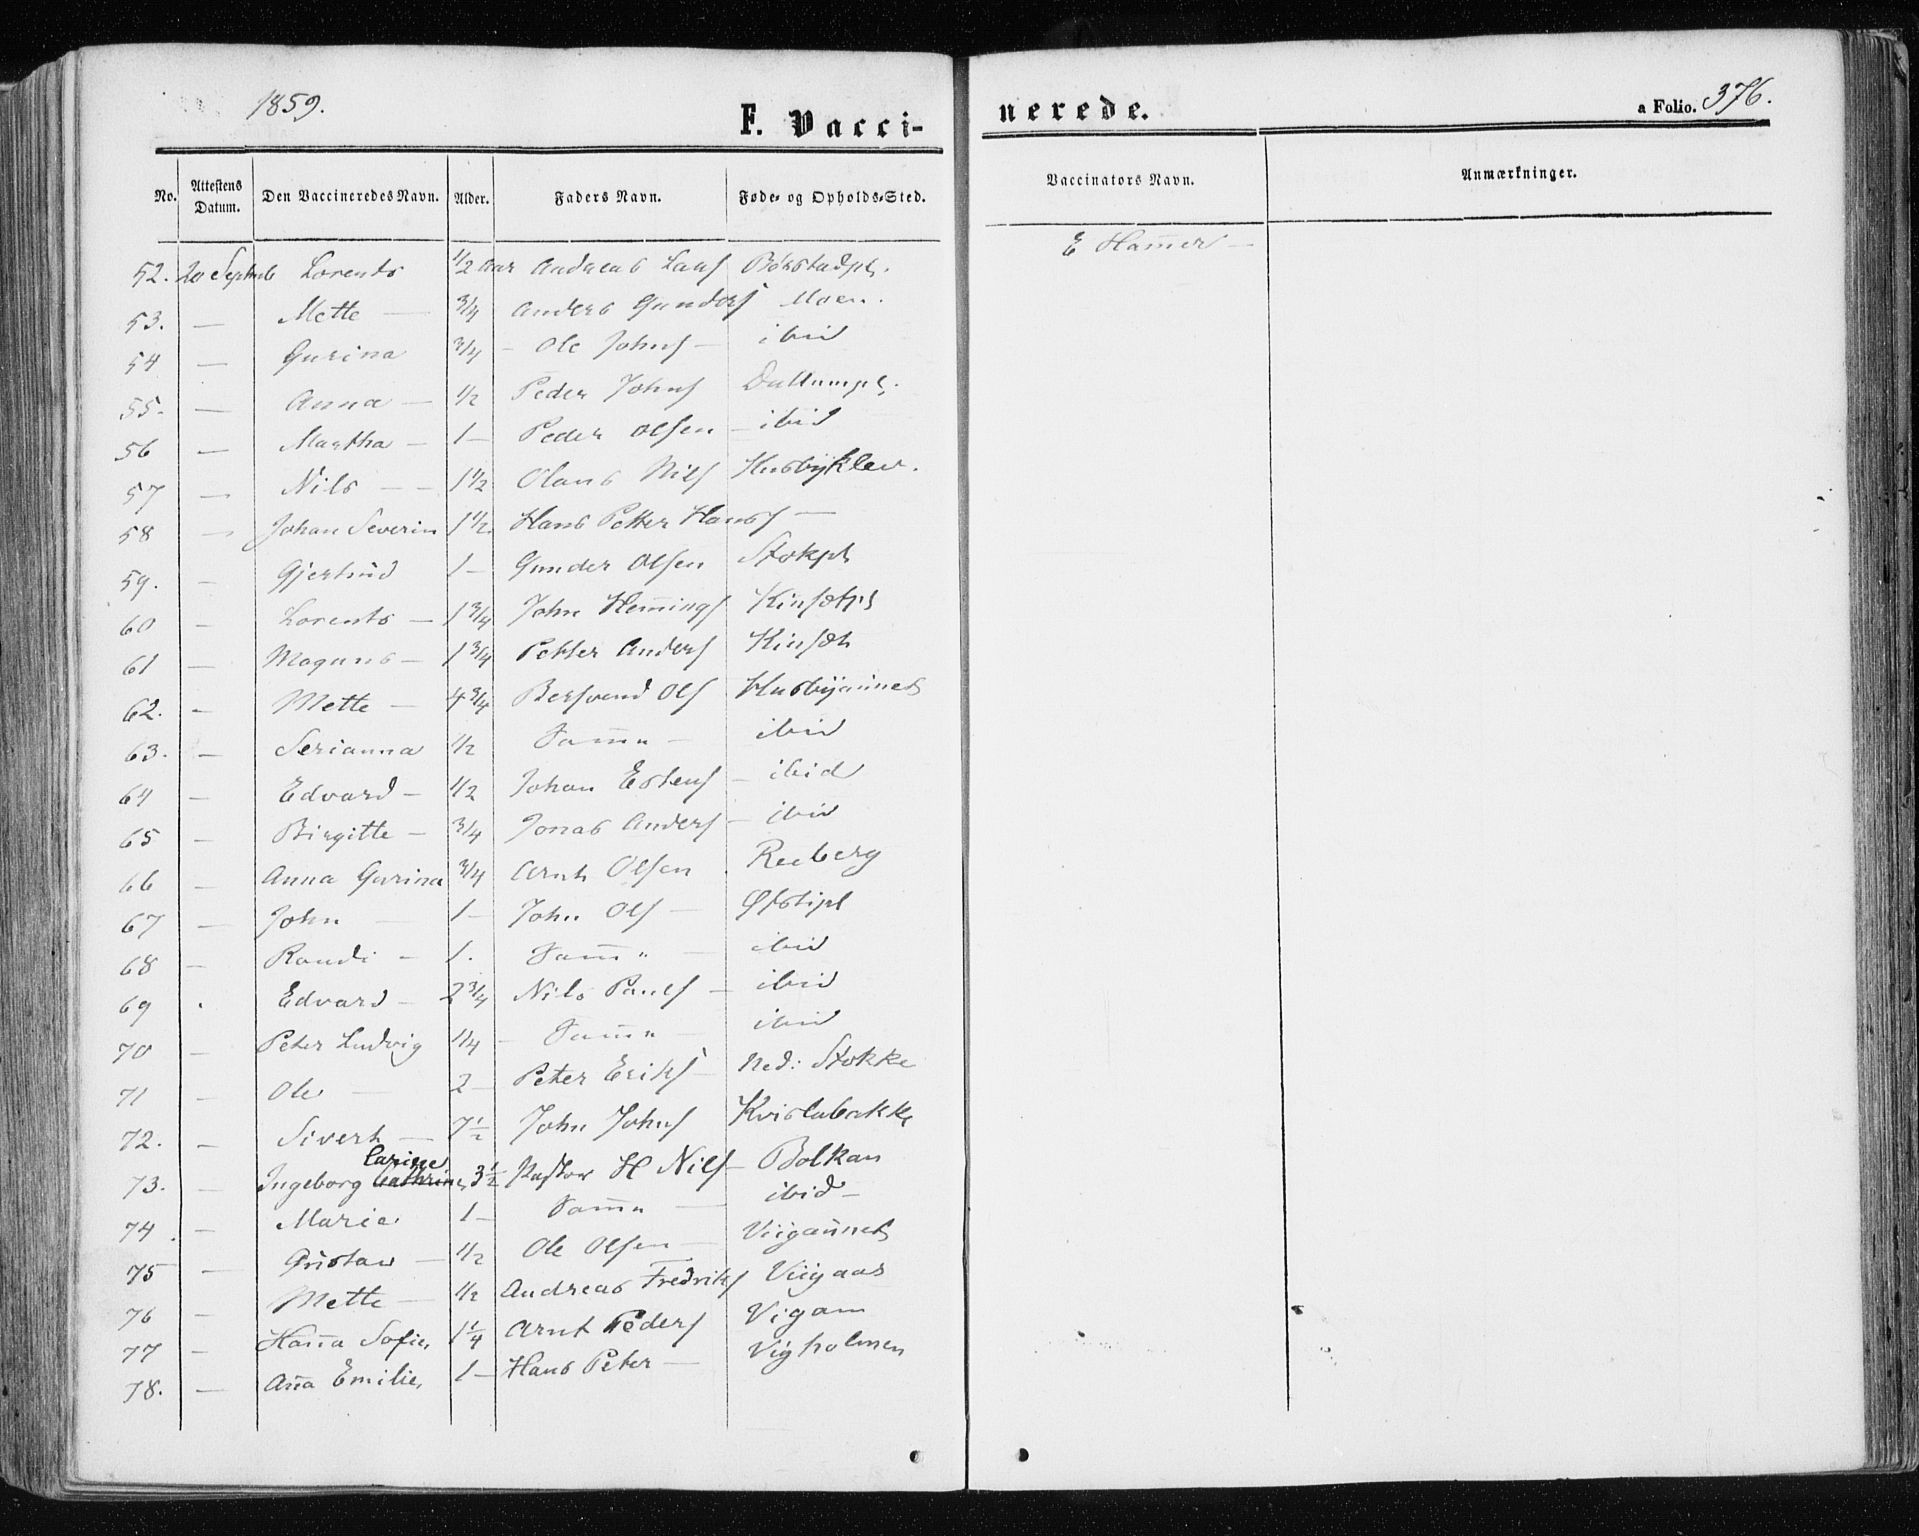 1859.
F. Vacci-
nerede.
a Folio. 376.
No. Attestens Datum. Den Vaccineredes Navn. Alder. Faders Navn. Føde- og Opholds-Sted. Vaccinators Navn. Anmærkninger.
52. 20 Septemb Lorents 1/2 Aar Andreas Larss Borstadpl. E Ham̄er —
53. — Mette — 3/4 Anders Gunders Moen.
54 — Gurina 3/4 — Ole Johns — ibid
55. — Anna — 1/2 Peder Johns Dullumpl.
56 — Martha — 1 — Peder Olsen — ibid
57 — Nils — — 1 1/2 Olaus Nils Husbyklev.
58 — Johan Severin 1 1/2. Hans Petter Hans —
59. — Gjertrud 1 — Gunder Olsen Stokpl
60 — Lorents — 1 3/4 John Hem̄ings Kinsætpl
61 — Magnus — 1 3/4 Petter Anders Kinsæt
62. — Mette — 4 3/4 Bersvend Ols Husbyaunet
63. — Serianna 1/2 Sam̄e — ibid
64 — Edvard — 1/2 Johan Estens — ibid
65 — Birgitte — 3/4 Jonas Anders — ibid
66 — Anna Gurina 3/4 Arnt Olsen . Reeberg
67 — John — 1 — John Ols — Øfstipl
68 — Randi — 1. Sam̄e — ibid
69 . Edvard — 2 3/4 Nils Pauls — ibid
70 — Peter Ludvig 1/4 — Sam̄e — ibid
71 — Ole — 2 — Peter Eriks — Ned: Stokke
72. — Sivert — 7 1/2 John Johns Kvislabakke
Carine
73. — Ingeborg Cathrine, 3 1/2 Pastor H Nils — Bolkan
74 . — Marie. 1 — Sam̄e — ibid —
75 — Gustav — 1/2 Ole Olsen — Viigaunet
76 — Mette — 1/2 Andreas Fredriks Viigaas
77 — Han̄a Sofie, 1 1/4 Arnt Peders Vigam
78. — An̄a Emilie, 1 — Hans Peter — Vigholmen